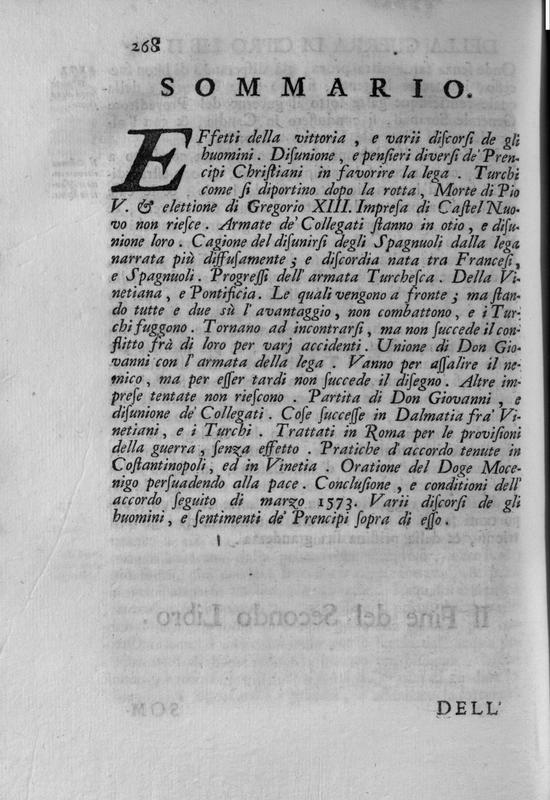 268
SOMMARIO.
EFfetti della vittoria, e varii diſcorſi de gli
huomini. Diſunione, e penſieri diverſi de' Pren-
cipi Chriſtiani in favorire la lega. Turchi
come ſi diportino dopo la rotta, Morte di Pio
V. & elettione di Gregorio XIII. Impreſa di Caſtel Nuo-
vo non rieſce. Armate de' Collegati ſtanno in otio, e diſu-
nione loro. Cagione del diſunirſi degli Spagnuoli dalla lega
narrata più diffuſamente; e diſcordia nata tra Franceſi,
e Spagnuoli. Progreſſi dell' armata Turcheſca. Della Vi-
netiana, e Pontificia. Le quali vengono a fronte; ma ſtan-
do tutte e due sù l' avantaggio, non combattono, e i Tur-
chi fuggono. Tornano ad incontrarſi, ma non ſuccede il con-
flitto frà di loro per varj accidenti. Unione di Don Gio-
vanni con l' armata della lega. Vanno per aſſalire il ne-
mico, ma per eſſer tardi non ſuccede il diſegno. Altre im-
preſe tentate non rieſcono. Partita di Don Giovanni, e
diſunione de' Collegati. Coſe ſucceſſe in Dalmatia fra' Vi-
netiani, e i Turchi. Trattati in Roma per le proviſioni
della guerra, ſenza effetto. Pratiche d' accordo tenute in
Coſtantinopoli, ed in Vinetia. Oratione del Doge Moce-
nigo perſuadendo alla pace. Concluſione, e conditioni dell'
accordo ſeguito di marzo 1573. Varii diſcorſi de gli
huomini, e ſentimenti de' Prencipi ſopra di eſſo.
DELL'